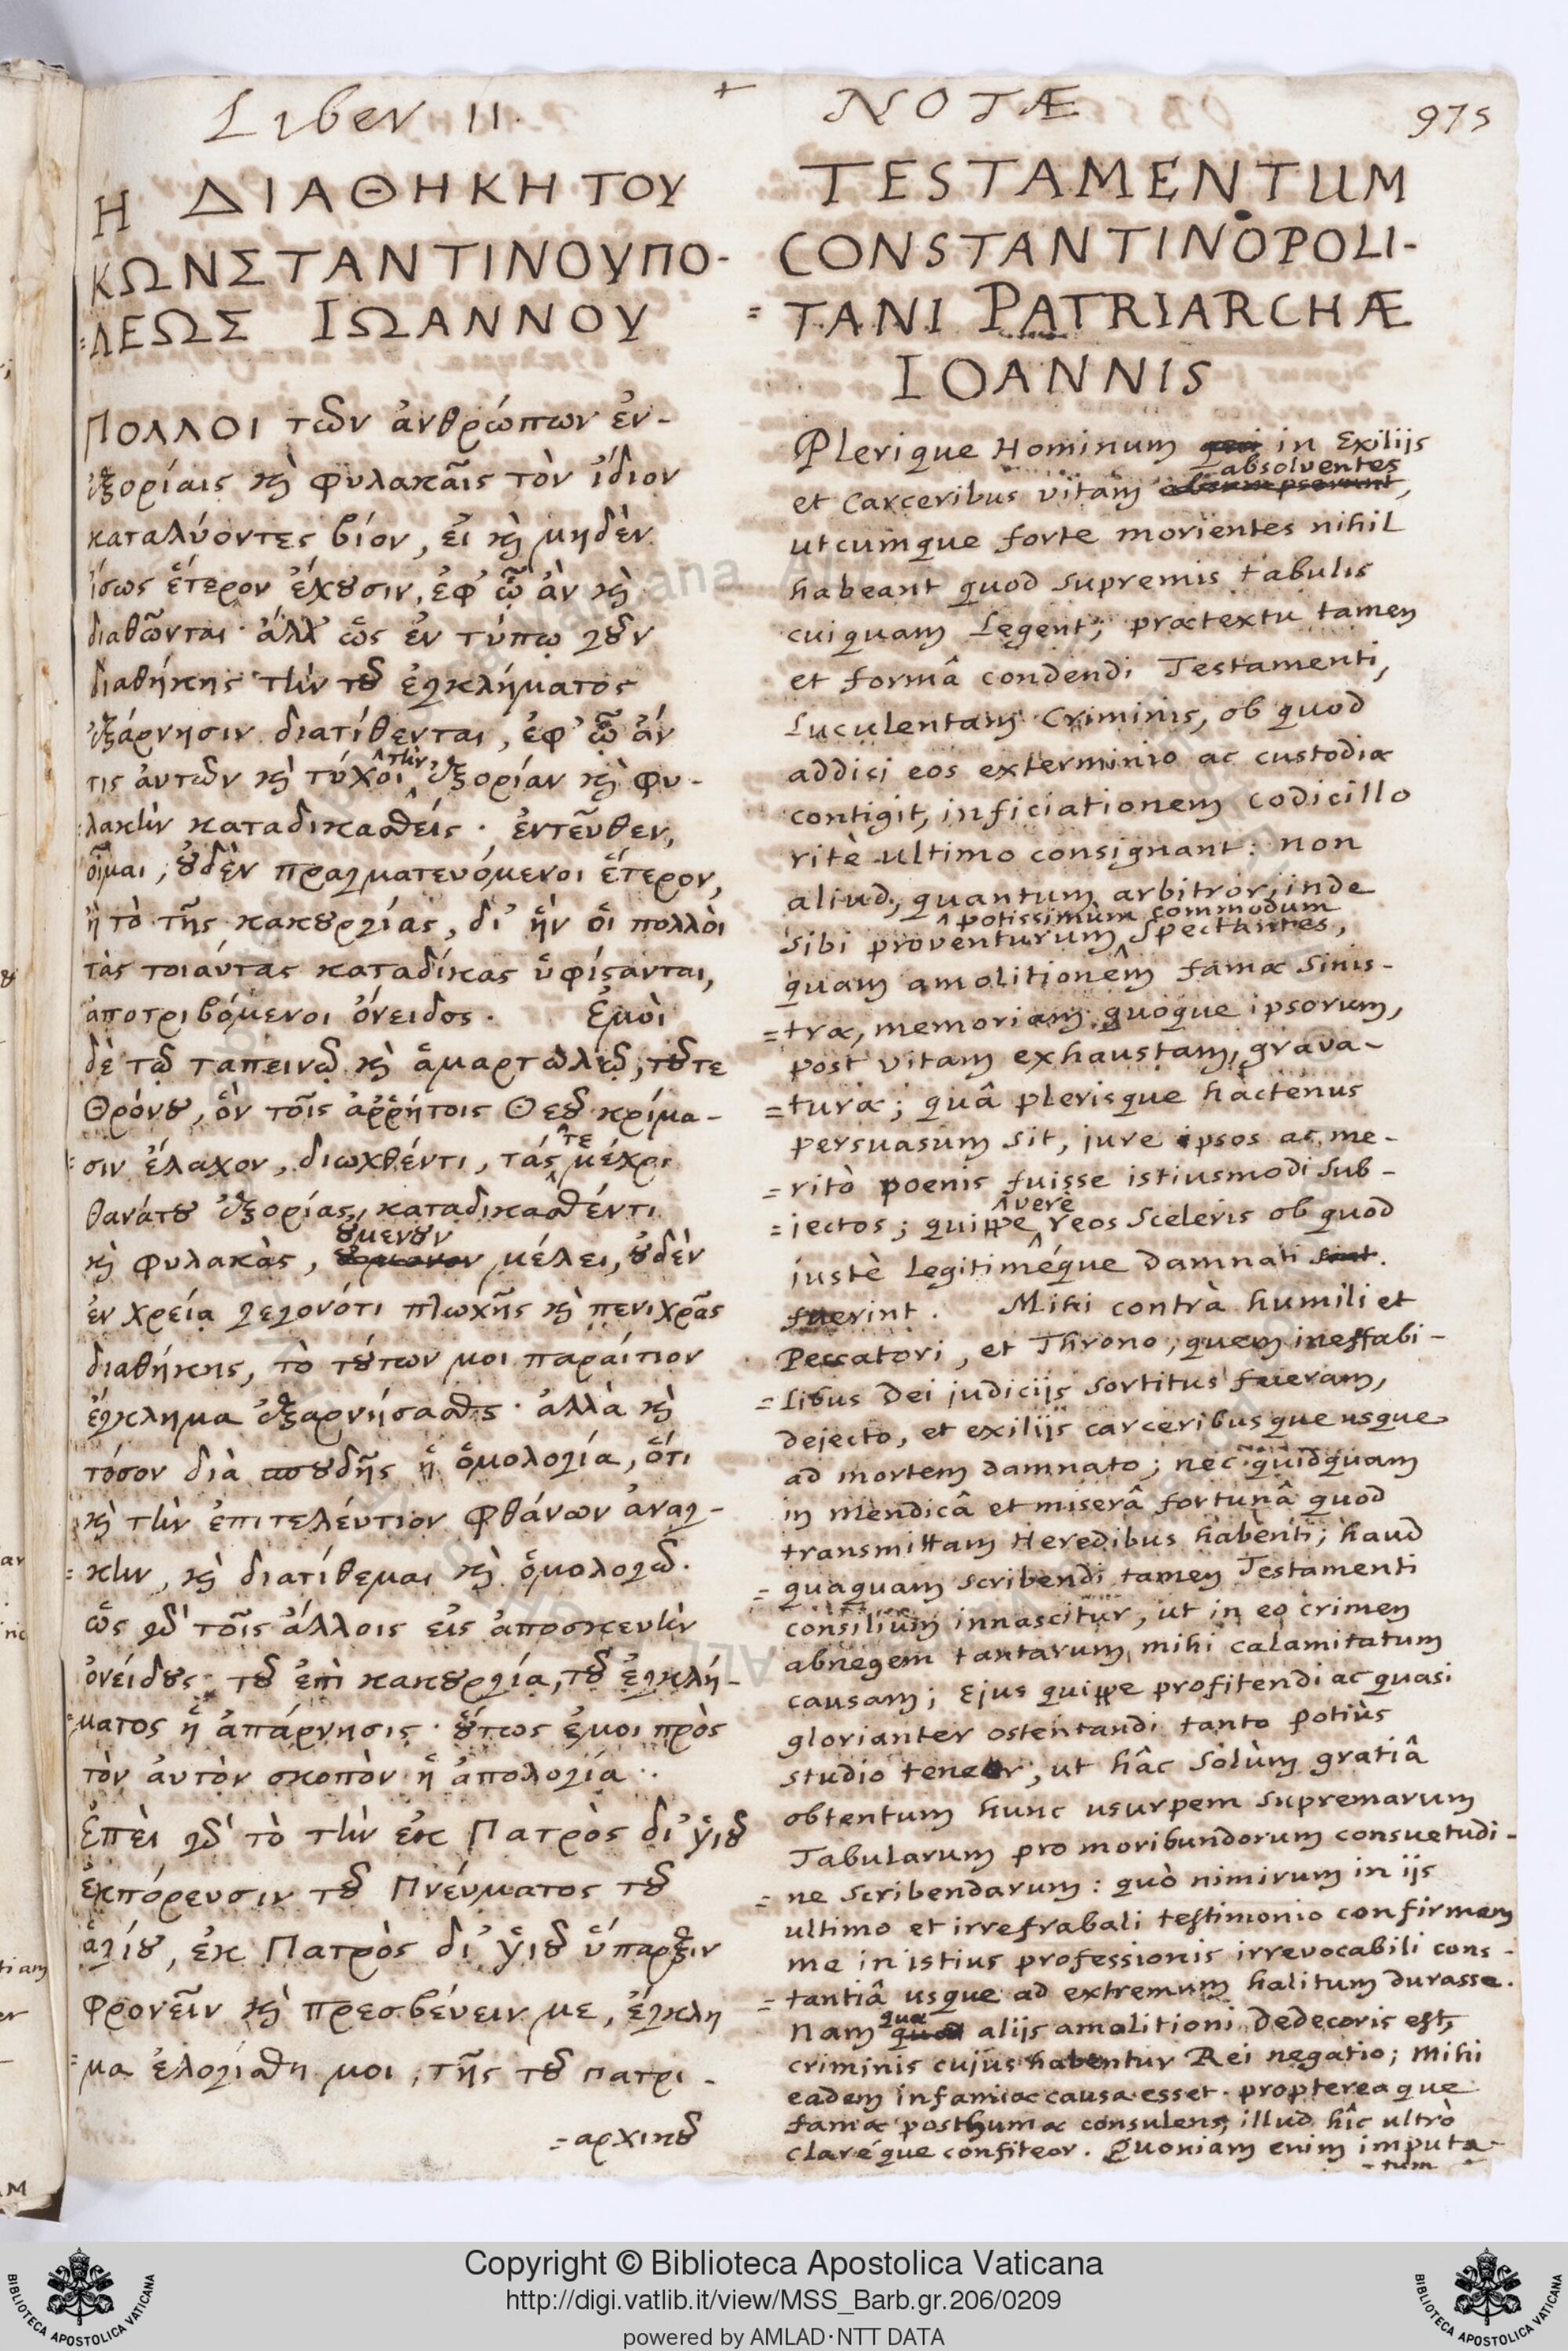 Liber II.
+
NOTÆ
975
Η ΔΙΑΘΗΚΗ ΤΟΥ
ΚΩΝΣΤΑΝΤΙΝΟΥΠΟ-
=ΛΕΩΣ ΙΩΑΝΝΟΥ
ΠΟΛΛΟΙ τῶν ἀνθρώπων ἐν-
ἐξορίαις κὴ φυλακαῖς τὸν ἴδιον
καταλύοντες βίον, εἰ κὴ μηδὲν
ἴσως ἕτερον ἔχȣσιν, ἐφ' ᾧ ἀν κὴ
διαθῶνται· ἀλλ' ὡς ἐν τύπῳ γȣ̃ν
διαθήκης τὴν τȣ̃ ἐγκλήματος
ἐξάρνησιν διατίθενται, ἐφ' ᾧ ἀν
τις ἀυτῶν κὴ τύχοι τὴν ἐξορίαν κὴ φυ-
λακὴν καταδικασθεὶς·, ἐντεῦθεν,
οἶμαι, ȣ̓δὲν πραγματευόμενοι ἕτερον,
ἢ τὸ τῆς κακȣργίας, δι' ἣν ὁι πολλὸι
τὰς τοιάυτας καταδίκας ὑφίςανται,
ἀποτριβόμενοι ὄνειδος. Ἐμὸι
δὲ τῷ ταπεινῷ κὴ ἁμαρτωλῷ, τȣ̃τε
Θρόνȣ, ὃν τοῖς ἀῤῥήτοις Θεȣ̃ κρίμα-
σιν ἔλαχον, διωχθέντι, τάς τε μέχρι
θανάτȣ ἐξορίας, καταδικασθέντι
κὴ φυλακὰς, ȣ̓μενȣ̃ν μέλει, ȣ̓δὲν
ἐν χρεία γεγονότι πτωχῆς κὴ πενιχρᾶς
διαθήκης, τὸ τȣ́των μοι παράιτιον
ἔγκλημα ἐξαρνήσασθαι· ἀλλὰ κὴ
τόσον διὰ σπȣδῆς ἡ ὁμολογία, ὅτι
κὴ τὴν ἐπιτελέυτιον φθάνων ἀναγ-
=κην, κὴ διατίθεμαι κὴ ὁμολογῶ.
ὡς γδ' τοῖς ἄλλοις εἰς ἀποσκευὴν
ὀνείδȣς τȣ̃ ἐπὶ κακȣργία, τȣ̃ ἐγκλή-
=ματος ἡ ἀπάρνησις· ȣ̔́τως ἐμοι πρὸς
τὸν ἀυτὸν σκοπὸν ἡ ἀπολογία··
Ἐπὲι γδ' τὸ τὴν ἐκ Πατρὸς δι' ὑιȣ̃
ἐκπόρευσιν τȣ̃ Πνέυματος τȣ̃
ἁγίȣ, ἐκ Πατρὸς δι' ὑιȣ̃ ὕπαρξιν
φρονεῖν κὴ πρεσβέυειν με, ἔγκλη
=μα ἐλογίσθη μοι, τῆς τȣ̃ πατρι-
=αρχικȣ̃
TESTAMENTUM
CONSTANTINOPOLI-
=TANI PATRIARCHÆ
IOANNIS
Plerique Hominum in Exilijs
et Carceribus vitam absolventes,
utcumque forte morientes nihil
habeant quod supremis tabulis
cuiquam Legent; prætextu tamen
et formâ condendi Testamenti,
Luculentam Criminis, ob quod
addici eos exterminio ac custodiæ
contigit, inficiationem Codicillo
ritè ultimo consignant: non
aliud, quantum arbitror, inde
sibi proventurum potissimùm commodum spectantes,
quàm amolitionem famæ Sinis-
=træ, memoriam quoque ipsorum,
post vitam exhaustam, grava-
=turæ; quâ plerisque hactenus
persuasum sit, jure ipsos ac me-
=ritò poenis fuisse istiusmodi sub-
=jectos; quippe verè reos Sceleris ob quod
justè Legitimêque damnati
fuerint. Mihi contrà humili et
Peccatori, et Throno, quem ineffabi-
=libus Dei judicijs sortitus fueram,
dejecto, et exilijs carceribusque usque
ad mortem damnato; nec quidquam
in mendicâ et miserâ fortunâ quod
transmittam Heredibus habenti; haud
=quaquam scribendi tamen Testamenti
consilium innascitur, ut in eo crimen
abnegem tantarum mihi calamitatum
causam; Ejus quippe profitendi ac quasi
glorianter ostentandi tanto potiùs
studio teneor, ut hâc Solùm gratiâ
obtentum hunc usurpem supremarum
Tabularum pro moribundorum consuetudi-
=ne scribendarum: quò nimirum in ijs
ultimo et irrefrabali testimonio confirmem
me in istius professionis irrevocabili cons-
=tantiâ usque ad extremum halitum durasse.
Nam quæ alijs amolitioni dedecoris est,
criminis cujus habentur Rei negatio; mihi
eadem infamiæ causa esset. proptereaque
famæ posthumæ consulens, illud hîc ultrò
clarèque confiteor. Quoniam enim imputa-
-tum
Copyright © Biblioteca Apostolica Vaticana
http://digi.vatlib.it/view/MSS_Barb.gr.206/0209
powered by AMLAD·NTT DATA
BIBLIOTECA APOSTOLICA VATICANA
BIBLIOTECA APOSTOLICA VATICANA